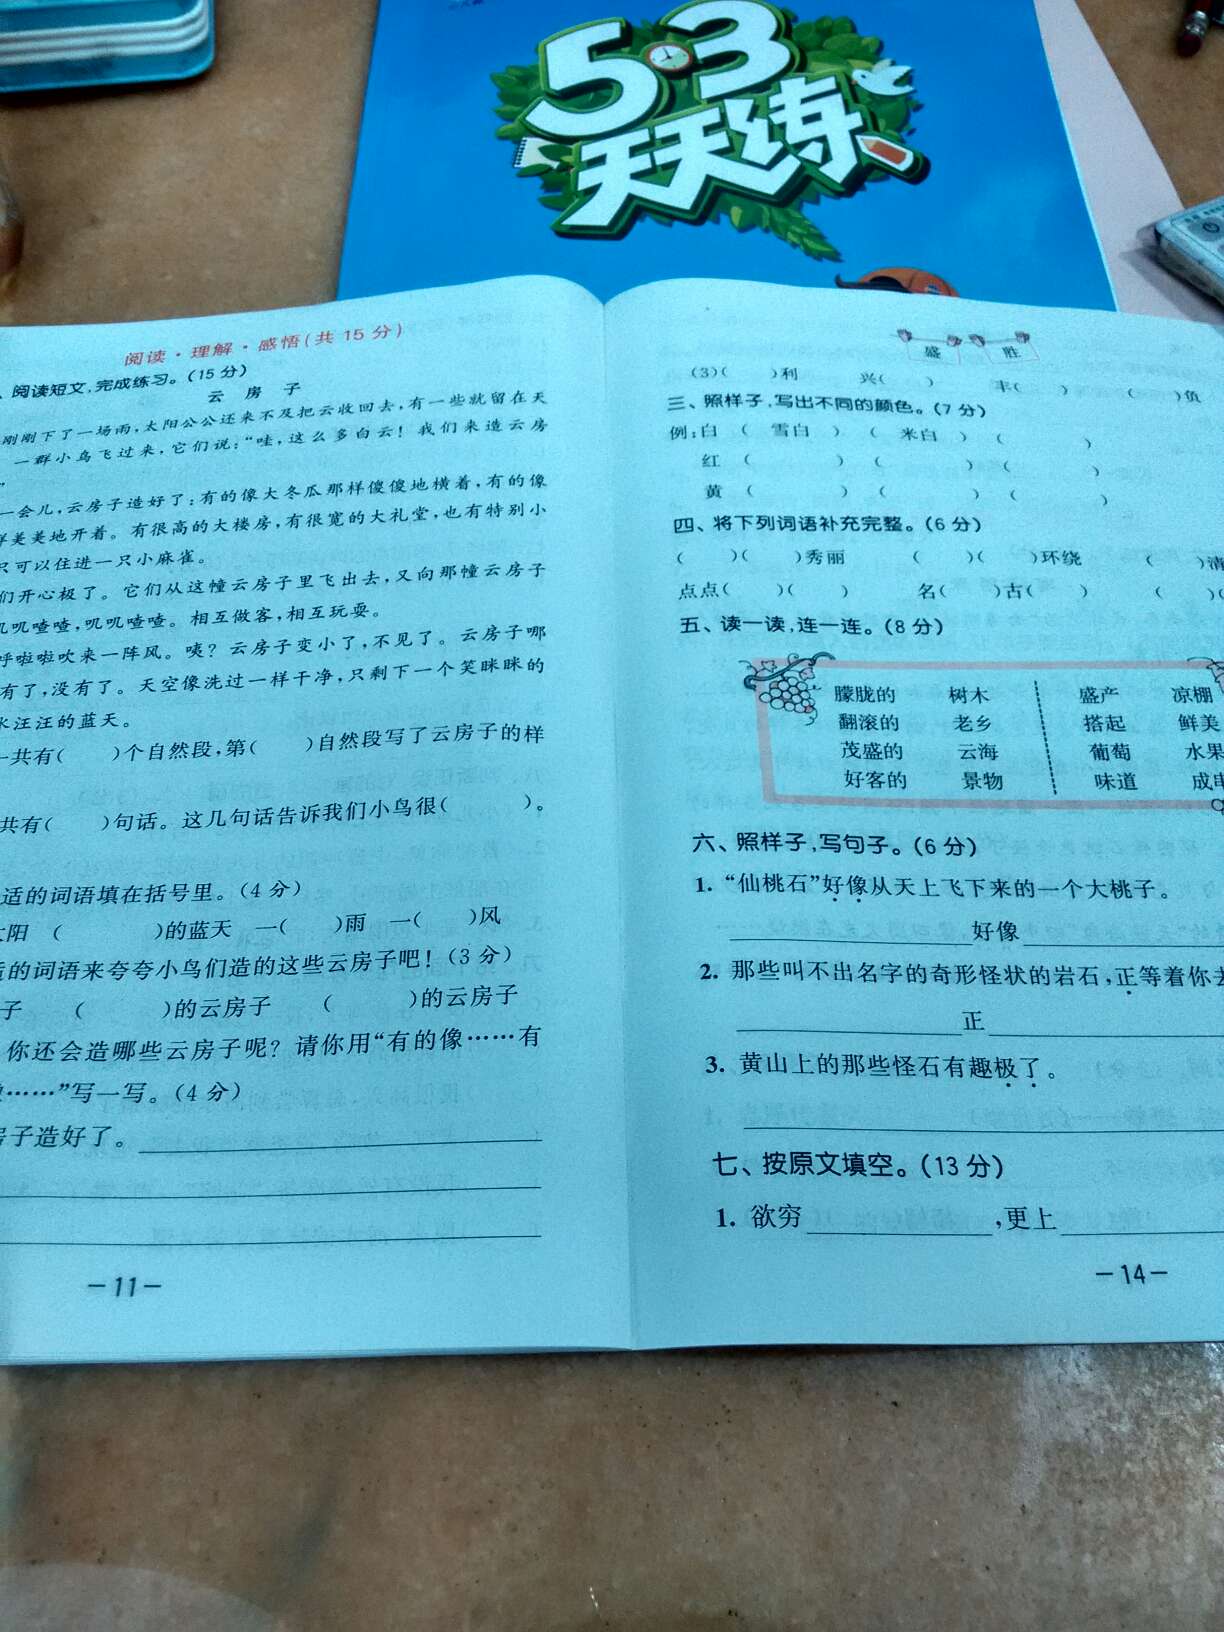 5·3
天天练
阅读·理解·感悟(共15分)
、阅读短文,完成练习。(15分)
云房子
刚刚下了一场雨,太阳公公还来不及把云收回去,有一些就留在天
一群小鸟飞过来,它们说:“哇,这么多白云!我们来造云房
”
一会儿,云房子造好了:有的像大冬瓜那样傻傻地横着,有的像
样美美地开着。有很高的大楼房,有很宽的大礼堂,也有特别小
只可以住进一只小麻雀。
们开心极了。它们从这幢云房子里飞出去,又向那幢云房子
叽叽喳喳,叽叽喳喳。相互做客,相互玩耍。
呼啦啦吹来一阵风。咦?云房子变小了,不见了。云房子哪
有了,没有了。天空像洗过一样干净,只剩下一个笑眯眯的
水汪汪的蓝天。
一共有( )个自然段,第( )自然段写了云房子的样
共有( )句话。这几句话告诉我们小鸟很( )。
适的词语填在括号里。(4分)
太阳 ( )的蓝天 一( )雨 一( )风
适的词语来夸夸小鸟们造的这些云房子吧!(3分)
子 ( )的云房子 ( )的云房子
你还会造哪些云房子呢?请你用“有的像……有
……”写一写。(4分)
房子造好了。
—11—
盛 胜
(3)( )利 兴( ) 丰( ) ( )负
三、照样子,写出不同的颜色。(7分)
例:白 ( 雪白 ) ( 米白 ) ( )
红 ( ) ( ) ( )
黄 ( ) ( ) ( )
四、将下列词语补充完整。(6分)
( )( )秀丽 ( )( )环绕 ( )清
点点( )( ) 名( )古( ) ( )(
五、读一读,连一连。(8分)
朦胧的 树木 盛产 凉棚
翻滚的 老乡 搭起 鲜美
茂盛的 云海 葡萄 水果
好客的 景物 味道 成串
六、照样子,写句子。(6分)
1. “仙桃石”好像从天上飞下来的一个大桃子。
好像
2. 那些叫不出名字的奇形怪状的岩石,正等着你去
正
3. 黄山上的那些怪石有趣极了。
七、按原文填空。(13分)
1. 欲穷 ,更上
—14—